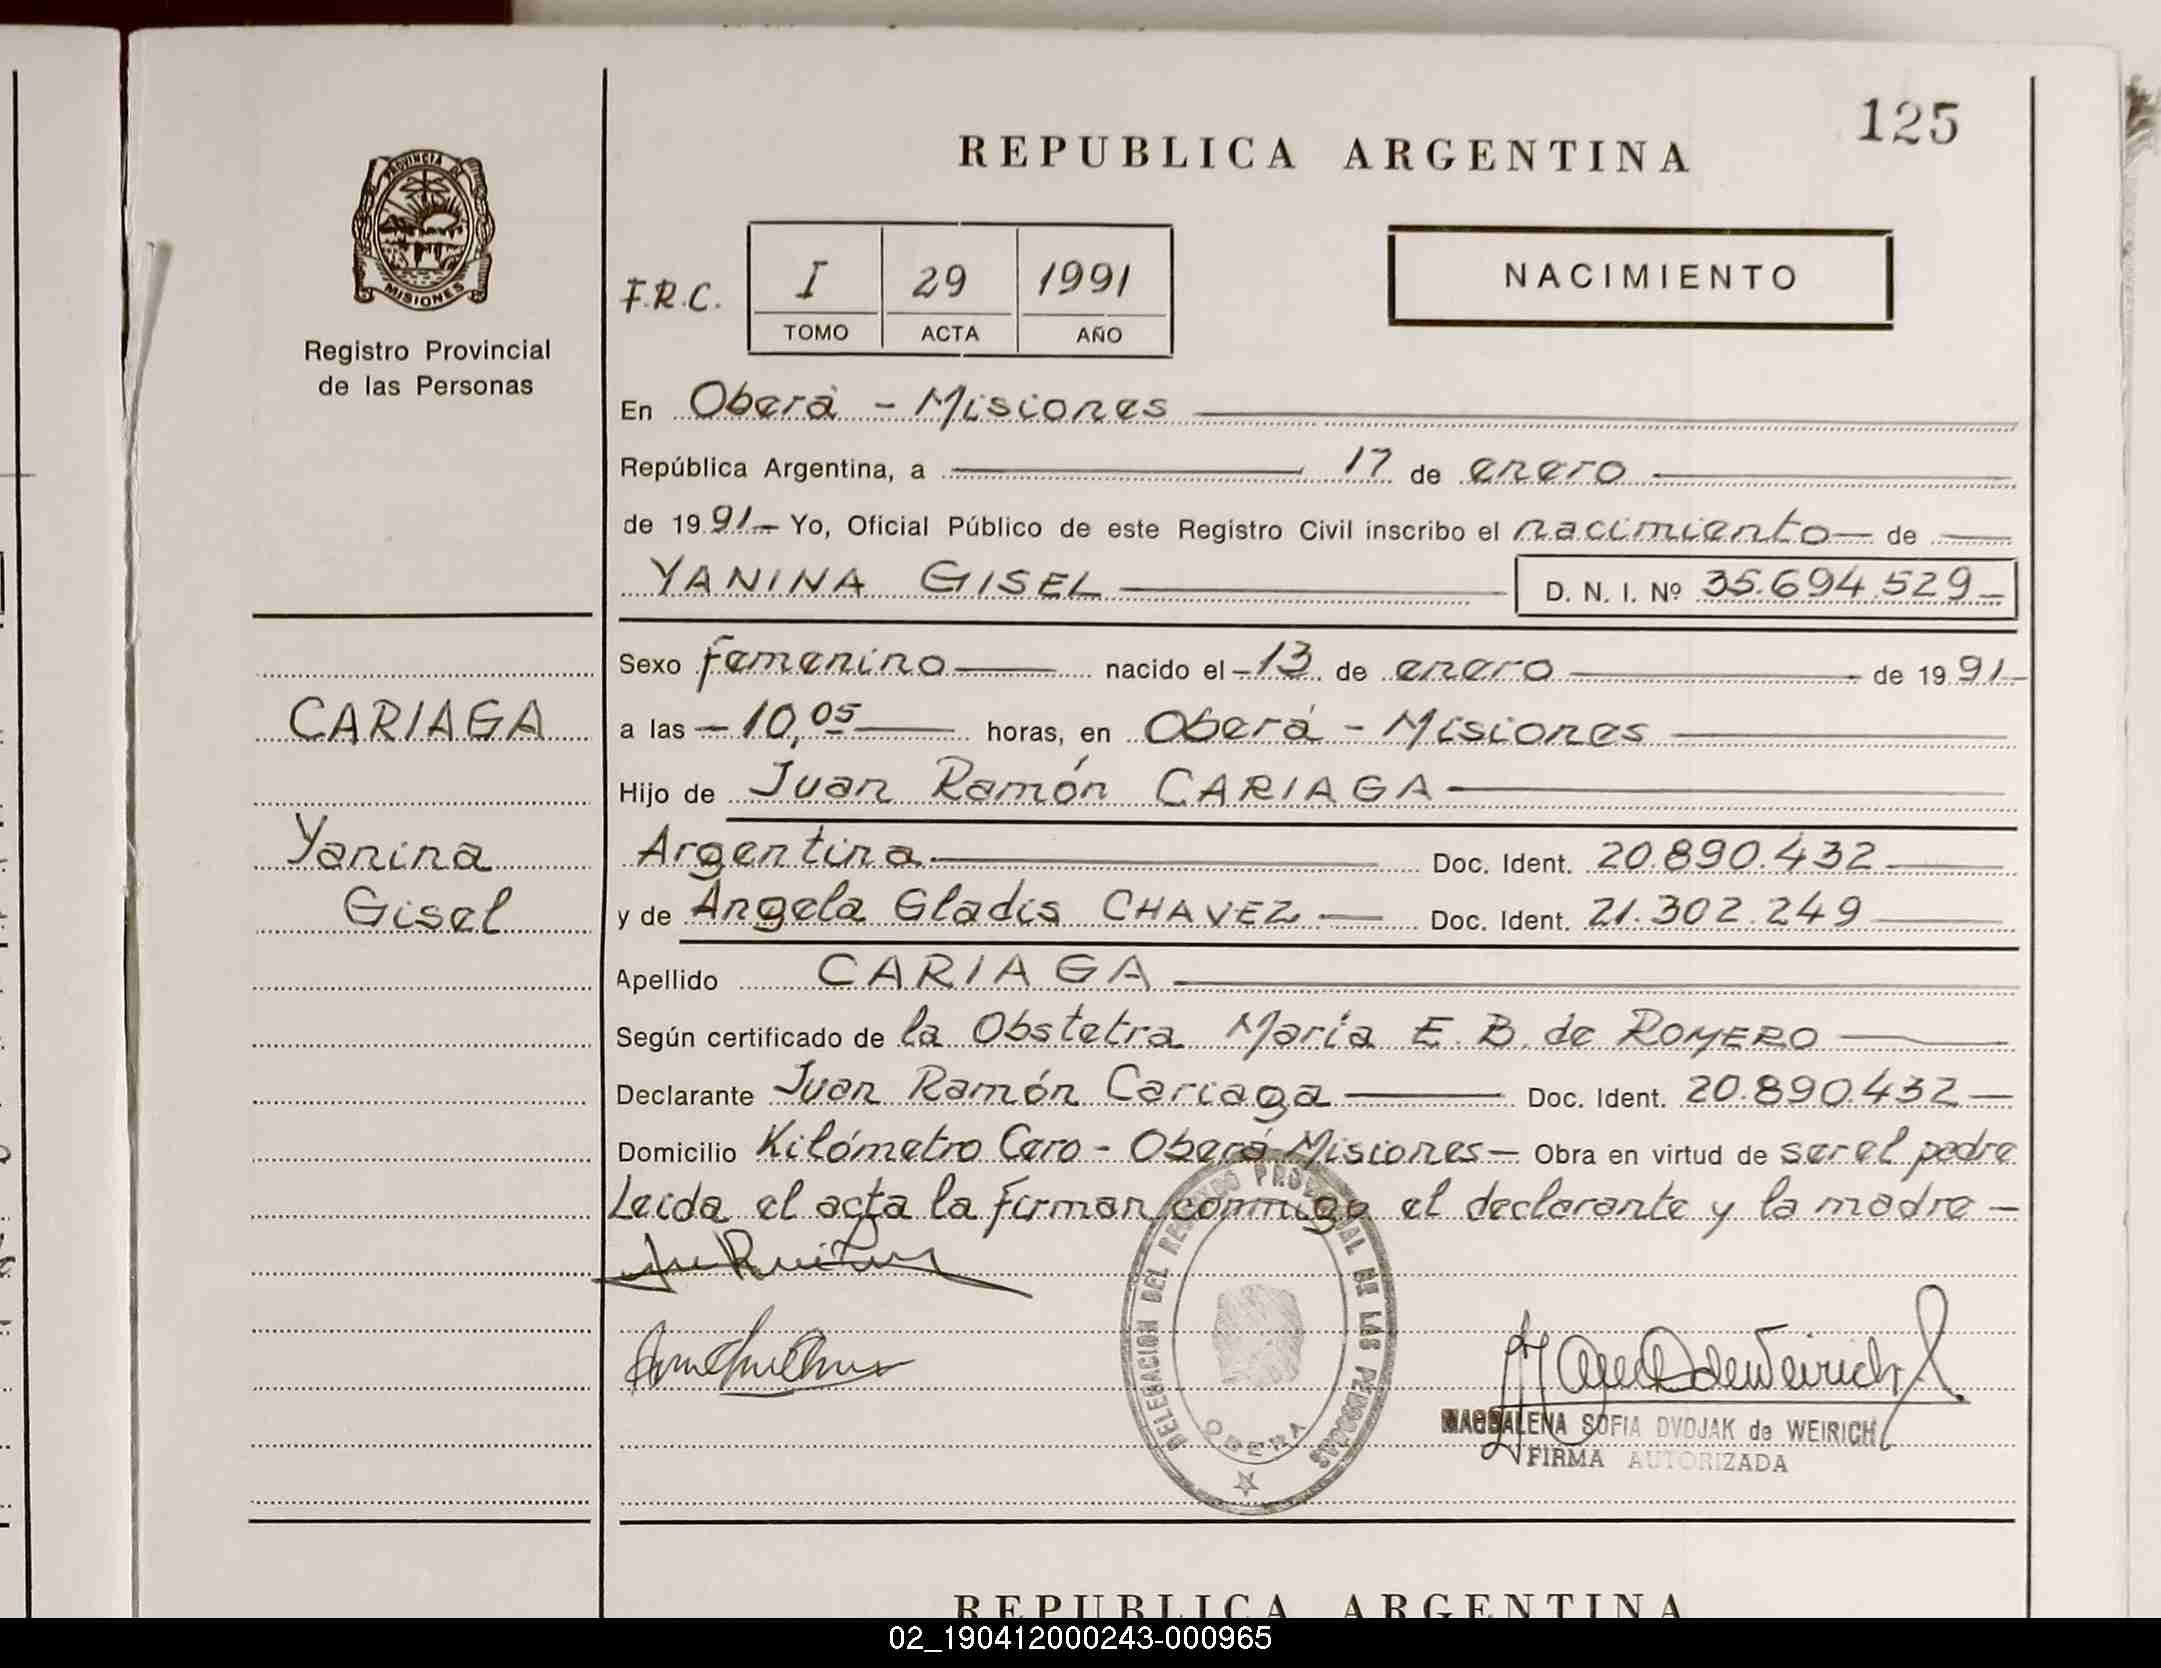 125
REPUBLICA ARGENTINA
PROVINCIA
MISIONES
Registro Provincial
de las Personas
F.R.C.
I 29 1991
TOMO ACTA AÑO
NACIMIENTO
En Oberá - Misiones
República Argentina, a 17 de enero
de 1991.- Yo, Oficial Público de este Registro Civil inscribo el nacimiento de
YANINA GISEL D. N. I. Nº 35.694.529
CARIAGA
Yanina
Gisel
Sexo femenino nacido el 13 de enero de 1991
a las 10,05 horas, en Oberá - Misiones
Hijo de Juan Ramón CARIAGA
Argentina Doc. Ident. 20.890.432
y de Angela Gladis CHAVEZ Doc. Ident. 21.302.249
Apellido CARIAGA
Según certificado de la Obstetra María E. B. de ROMERO
Declarante Juan Ramón Cariaga Doc. Ident. 20.890.432
Domicilio Kilómetro Cero - Oberá Misiones Obra en virtud de ser el padre
Leida el acta la firman conmigo el declarante y la madre
DELEGACION DEL REGISTRO PROVINCIAL DE LAS PERSONAS
OBERA
MAGDALENA SOFIA DVOJAK de WEIRICH
FIRMA AUTORIZADA
REPUBLICA ARGENTINA
02_190412000243-000965